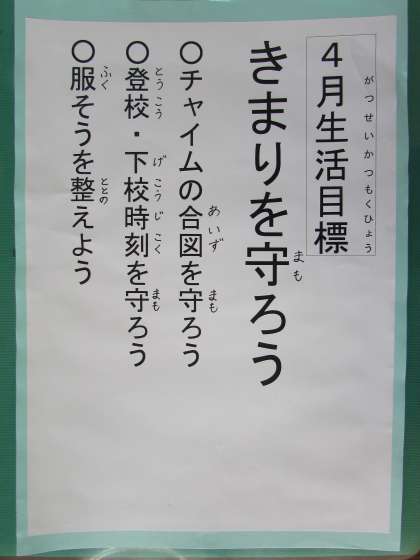 ４月生活目標
がつせいかつもくひょう
きまりを守ろう
まも
〇チャイムの合図を守ろう
あいず
まも
〇登校・下校時刻を守ろう
とうこう
げこうじこく
まも
〇服そうを整えよう
ふく
ととの